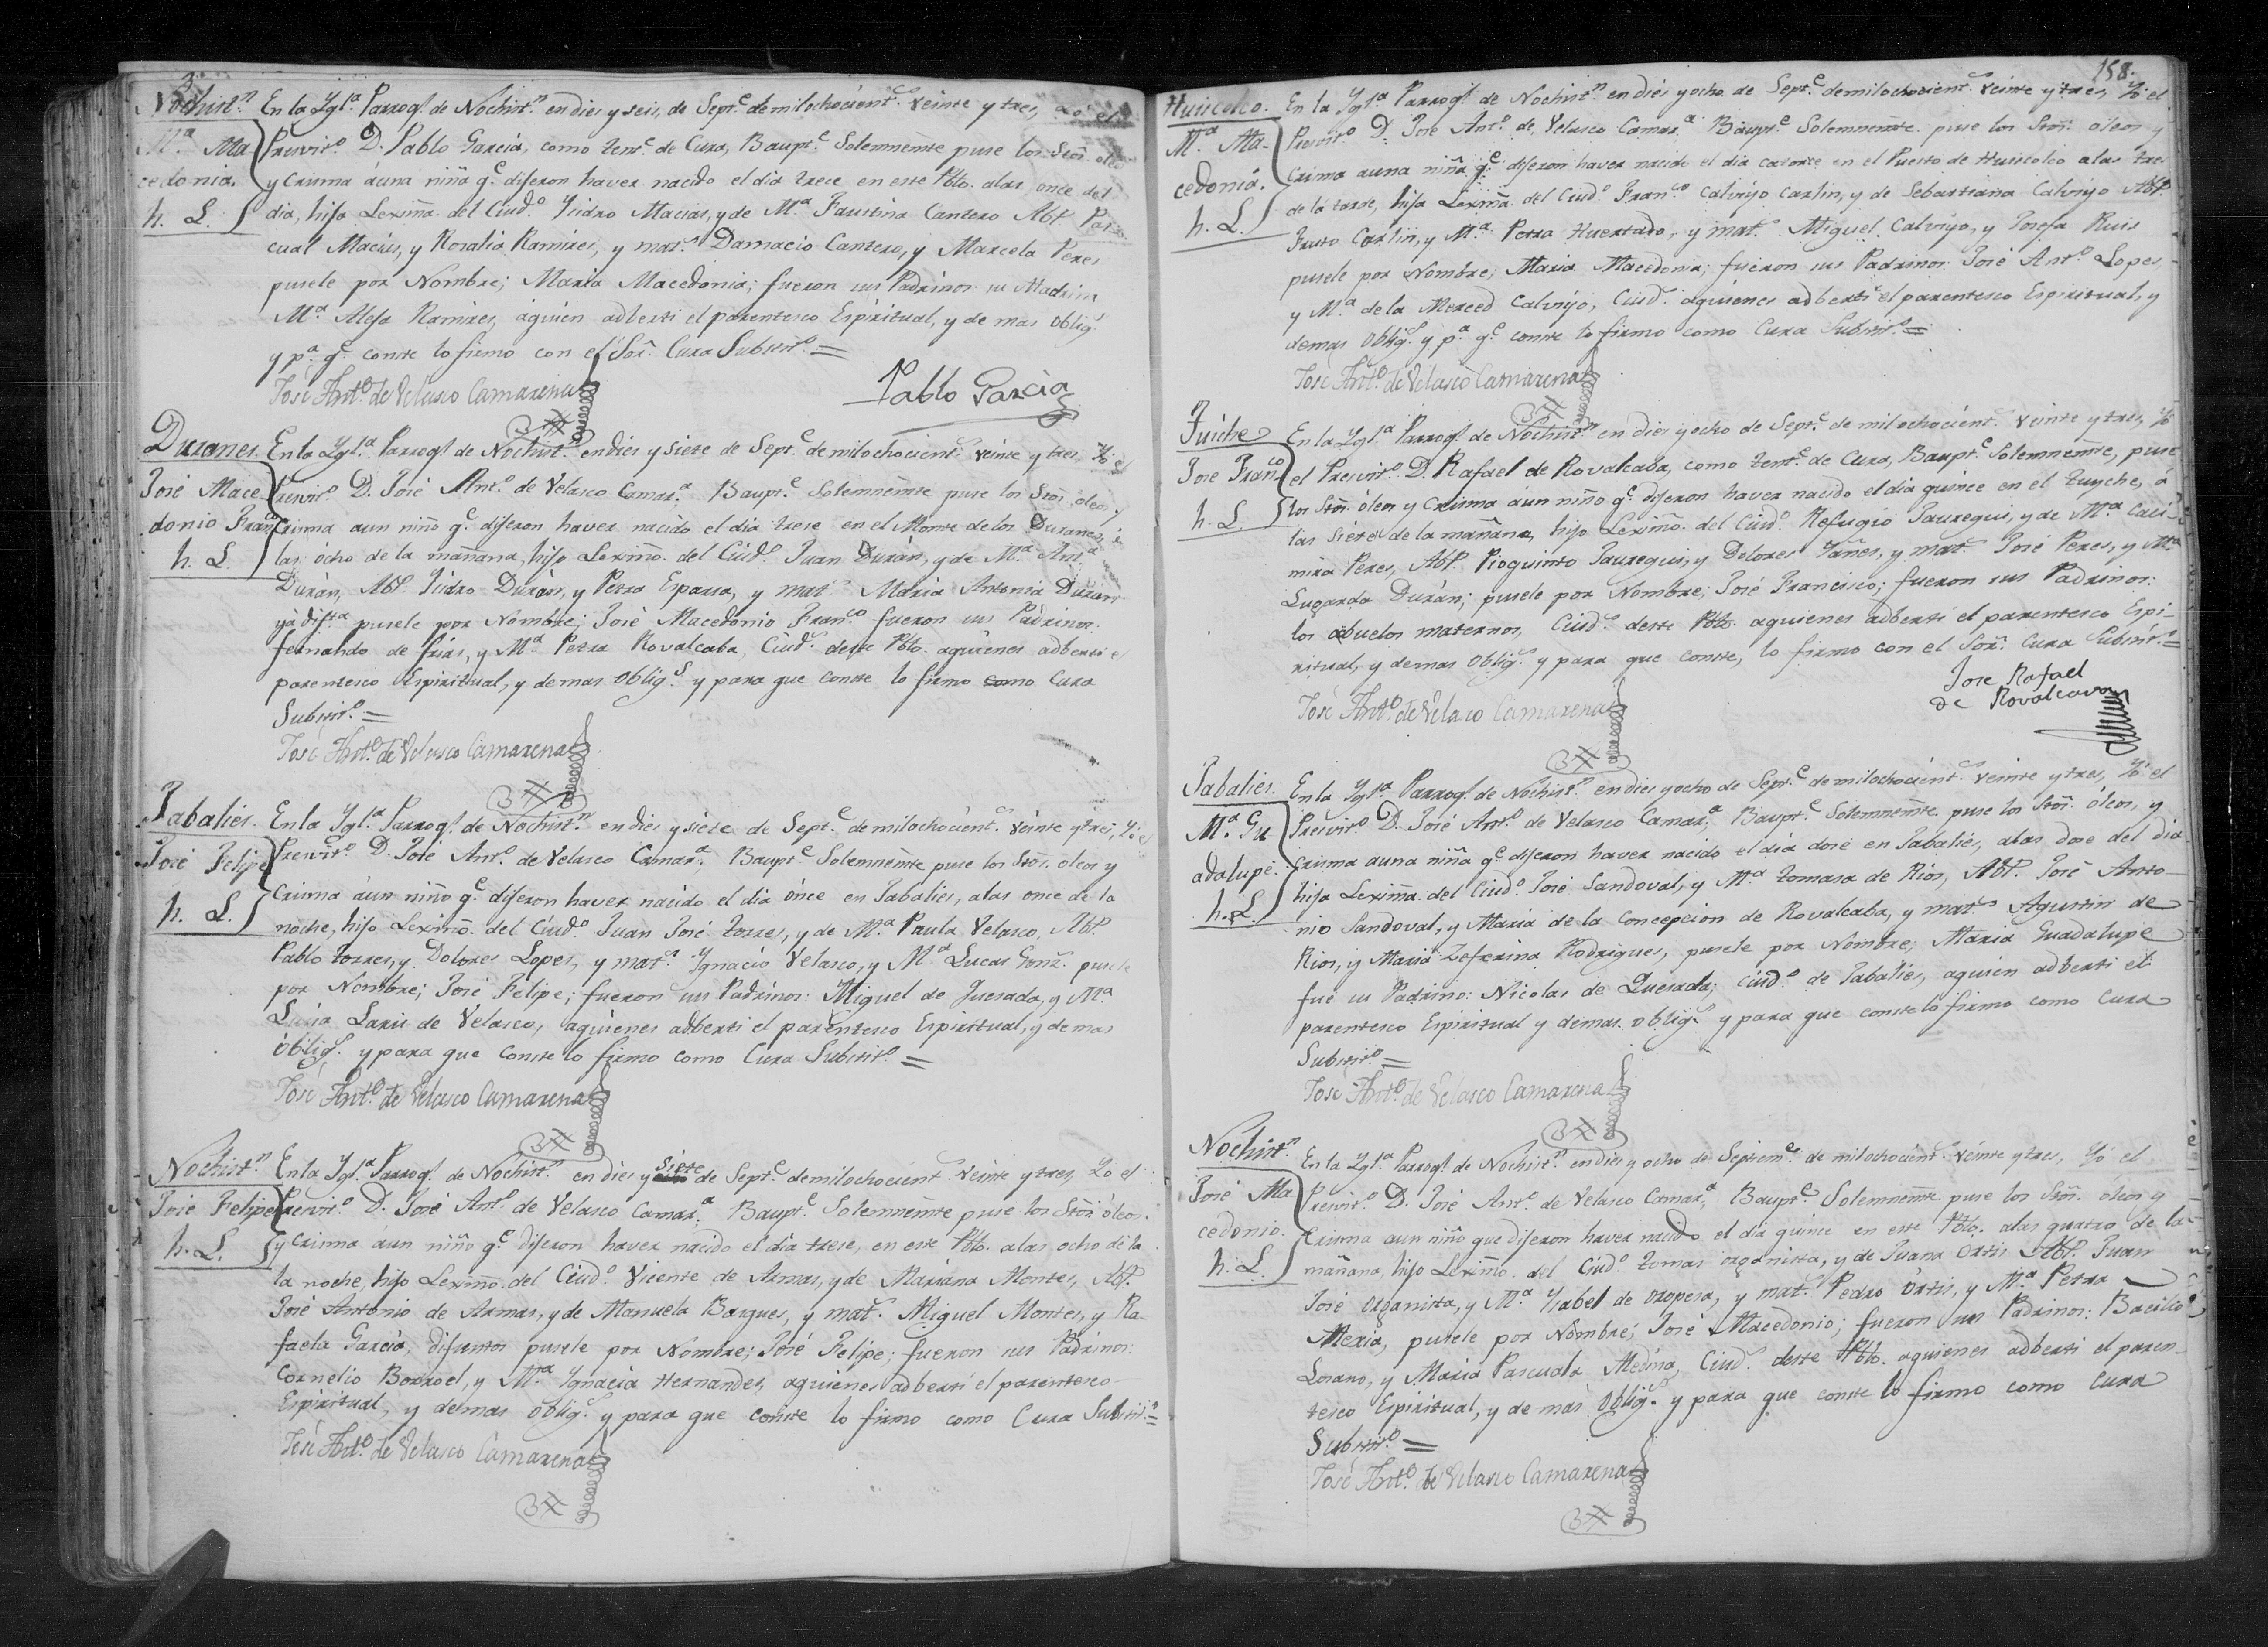 Nochistn.
Ma. Ma
cedonia.
h. L.
En la Ygla. Parroql. de Nochistn. en dies y seis, de Septe. de milochocients. veinte y tres, Yo el
Presvito. D. Pablo Garcia, como tente. de Cura, Baupte. Solemnemte puse los Stos. oleos
y Crisma áuna niña qe. dijeron haver nacido el dia trece en este Pblo. alas once del
dia, hija Lexima. del Ciudo. Ysidro Macias, y de Ma. Faustina Cantero Abs. Ps. Pas
cual Macias, y Rosalia Ramires, y mats. Damacio Cantero, y Marcela Peres
pusele por Nombre; Maria Macedonia; fueron sus Padrinos su Madrina
Ma. Alesa Ramires, áquien adberti el parentesco Espiritual, y de mas obligs.
y pa. qe. conste lo firmo con el Sor. Cura Substo. =
José Anto. de Velasco Camarena
Pablo Garcia
Duranes
José Mace
donio Franco.
h. L.
En la Ygla. Parroql. de Nochistn. en dies y siete de Septe. de milochocients. veinte y tres, Yo el
Presvito. D. José Anto. de Velasco Camara. Baupte. Solemnemte puse los Stos. oleos y
Crisma aun niño qe. dijeron haver nacido el dia trese en el Monte de los Duranes, á
las ócho de la mañana, hijo Leximo. del Ciudo. Juan Durán, y de Ma. Anta.
Durán, Abs. Ps. Ysidro Durán, y Petra Esparsa, y mats. Maria Antonia Duran
yá difta. pusele por Nombre; José Macedonio Franco. fueron sus Padrinos:
fernando de frias, y Ma. Petra Rovalcaba, Ciuds. deste Pblo. aquienes adberti el
parentesco Espiritual, y demas obligs. y para que conste lo firmo como Cura
Substo. =
José Anto. de Velasco Camarena
Jabalies.
José Felipe
h. L.
En la Ygla. Parroql. de Nochistn. en dies y siete de Septe. de milochocients. veinte y tres, Yo el
Presvito. D. José Anto. de Velasco Camara. Baupte. Solemnemte puse los Stos. oleos y
Crisma áun niño qe. dijeron haver nacido el dia ónce en Jabalies, alas once de la
noche, hijo Leximo. del Ciudo. Juan José torres, y de Ma. Paula Velasco, Abs. Ps.
Pablo torres, y Dolores Lopes, y mats. Ygnacio Velasco, y Ma. Lucas Gonz. pusele
por Nombre; José Felipe; fueron sus Padrinos: Miguel de Quesada, y Ma.
Luisa Laris de Velasco, aquienes adberti el parentesco Espiritual, y demas
óbligs. y para que conste lo firmo como Cura Substo. =
José Anto. de Velasco Camarena
Nochistn.
José Felipe
h. L.
En la Ygla. Parroql. de Nochistn. en dies y siete de Septe. de milochocients. veinte y tres, Yo el
Presvito. D. José Anto. de Velasco Camara. Baupte. Solemnemte puse los Stos. óleos
y Crisma áun niño qe. dijeron haver nacido el dia trese, en este Pblo. alas ocho de la
la noche, hijo Leximo. del Ciudo. Vicente de Armas, y de Mariana Montes, Abs. Ps.
José Antonio de Armas, y de Manuela Bargues, y mats. Miguel Montes, y Ra-
faela Garcia, difuntos pusele por Nombre; José Felipe; fueron sus Padrinos:
Cornelio Borroel, y Ma. Ygnacia Hernandes, aquienes adberti el parentesco
Espiritual, y demas obligs. y para que conste lo firmo como Cura Substo. =
José Anto. de Velasco Camarena
158.
Huiscolco.
Ma. Ma-
cedonia.
h. L.
En la Ygla. Parroql. de Nochistn. en dies y ocho de Septe. de milochocients. veinte y tres, Yo el
Presvito. D. José Anto. de Velasco Camara. Baupte. Solemnemte. puse los Stos. óleos y
Crisma auna niña qe. dijeron haver nacido el dia catorce en el Puesto de Huiscolco alas tres
de la tarde, hija Lexima. del Ciudo. Franco. Calvijo Carlin, y de Sebastiana Calvijo Abs. Ps.
Justo Carlin, y Ma. Petra Huertado, y mats. Miguel Calvijo, y Josefa Ruis
pusele por Nombre; Maria Macedonia; fueron sus Padrinos José Anto. Lopes,
y Ma. de la Merced Calvijo, Ciuds. aquienes adberti el parentesco Espiritual, y
demas obligs. y pa. qe. conste lo firmo como Cura Substo. =
José Anto. de Velasco Camarena
Tuiche
José Franco.
h. L.
En la Ygla. Parroql. de Nochistn. en dies y ocho de Septe. de milochocients. veinte y tres, Yo
el Presvito. D. Rafael de Rovalcaba, como tente. de Cura, Baupte. Solemnemte, puse
los Stos. óleos y Crisma áun niño qe. dijeron haver nacido el dia quince en el tuyche, á
las siete de la mañana, hijo Leximo. del Ciudo. Refugio Jauregui, y de Ma. Casi-
mira Peres, Abs. Ps. Pioquinto Jauregui, y Dolores Yañes, y mats. José Peres, y Ma.
Lugarda Durán; pusele por Nombre; José Francisco; fueron sus Padrinos:
los abuelos maternos, Ciuds. deste Pblo. aquienes adberti el parentesco Espi-
ritual, y demas obligs. y para que conste, lo firmo con el Sor. Cura Substo. =
José Anto. de Velasco Camarena
Jose Rafael
de Rovalcava
Jabalies.
Ma. Gu
adalupe.
h. L.
En la Ygla. Parroql. de Nochistn. en dies y ocho de Septe. de milochocients. veinte y tres, Yo el
Presvito. D. José Anto. de Velasco Camara. Baupte. Solemnemte. puse los Stos. óleos, y
Crisma auna niña qe. dijeron haver nacido el dia dosé en Jabaliés, alas dose del dia
hija Lexima. del Ciudo. José Sandoval, y Ma. tomasa de Rios, Abs. Ps. José Anto-
nio Sandoval, y Maria de la Concepcion de Rovalcaba, y mats. Agustin de
Rios, y Maria Zeferina Rodrigues, pusele por Nombre; Maria Guadalupe
fué su Padrino: Nicolas de Quesada; Ciudo. de Jabaliés, aquien adberti el
parentesco Espiritual y demas obligs. y para que conste lo firmo como Cura
Substo. =
José Anto. de Velasco Camarena
Nochistn.
José Ma
cedonio.
h. L.
En la Ygla. Parroql. de Nochistn. en dies y ocho de Septieme. de milochocients. veinte y tres, Yó el
Presvito. D. José Anto. de Velasco Camara. Baupte. Solemnemte. puse los Stos. óleos y
Crisma aun niño que dijeron haver nacido el dia quince en este Pblo. alas quatro de la
mañana, hijo Leximo. del Ciudo. tomas organista, y de Juana Ortis Abs. Ps. Juan
José Organista, y Ma. Ysabel de Oropesa, y mats. Pedro Ortis, y Ma. Petra
Mexia, pusele por Nombre; José Macedonio; fueron sus Padrinos: Bacilio
Losano, y Maria Pascuala Medina, Ciuds. deste Pblo. aquienes adberti el paren-
tesco Espiritual, y de más obligs. y para que conste lo firmo como Cura
Substo. =
José Anto. de Velasco Camarena